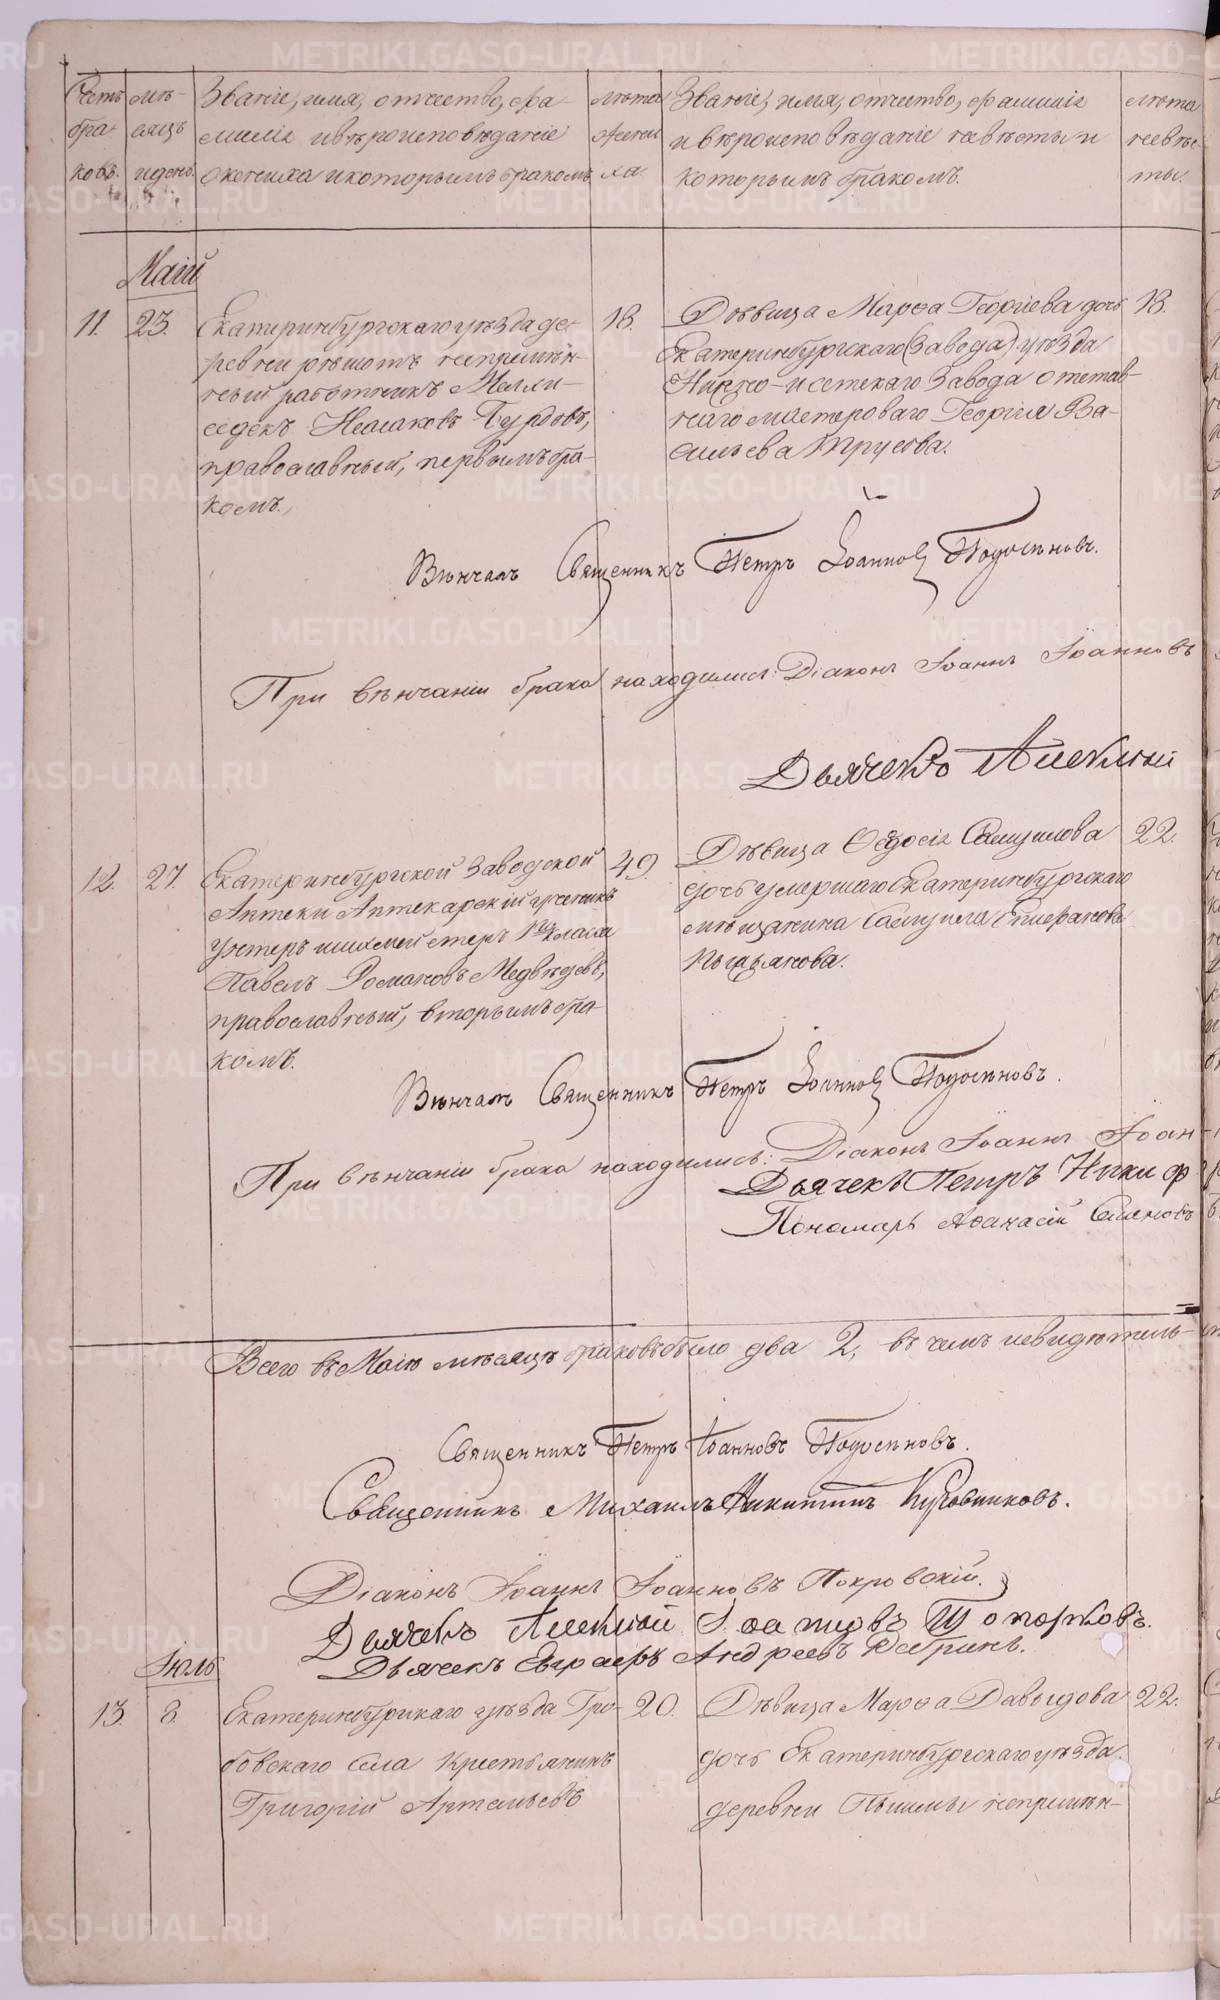 Счетъ бра- ковъ.
мѣ- сяцъ и день.
Званіе, имя, отчество, фа-
милія и вѣроисповѣданіе
жениха и которымъ бракомъ
лѣта жени ха
Званіе, имя, отчество, фамилія
и вѣроисповѣданіе невѣсты и
которымъ бракомъ.
лѣта невѣс ты.
Маій
11. 23.
Екатеринбургскаго уѣзда де-
ревни Рѣшотъ непремѣн-
ный работникъ Мелхи-
седекъ Исааковъ
православный, первымъ бра-
комъ.
18.
Дѣвица Марѳа Георгіева дочь
Екатеринбургскаго (завода) уѣзда
Нижно-исетскаго завода отстав-
наго мастероваго Георгія Ва-
сильева Трусова.
18.
Вѣнчалъ Священникъ Петръ Іоанновъ Подосеновъ.
При вѣнчаніи брака находились: Діаконъ Іоаннъ Іоанновъ
Дьячекъ Алексѣй
12. 27.
Екатеринбургской Заводской
Аптеки Аптекарскій ученикъ
унтеръ шихмейстеръ 1го класса
Павелъ Романовъ Медвѣдевъ,
православный, вторымъ бра-
комъ.
49.
Дѣвица Ѳедосія Самуилова
дочь умершаго Екатеринбургскаго
мѣщанина Самуила Епифанова
22.
Вѣнчалъ Священникъ Петръ Іоанновъ Подосеновъ.
При вѣнчаніи брака находились: Діаконъ Іоаннъ Іоан-
Дьячекъ Петръ Никиф
Пономарь Аѳанасій Семеновъ
Всего въ Маію мѣсяцѣ браковъ было два 2, въ чемъ и свидѣтель-
Священникъ Петръ Іоанновъ Подосеновъ.
Священникъ Михаилъ Никитинъ Кудовшиковъ.
Діаконъ Іоаннъ Іоанновъ Покровскій.
Дьячекъ Алексѣй Топорковъ.
Дьячекъ Евграфъ Андреевъ
Іюль
13. 8.
Екатеринбургскаго уѣзда Гро-
бовскаго села крестьянинъ
Григорій Артемьевъ
20.
Дѣвица Марѳа Давыдова
дочь Екатеринбургскаго уѣзда
деревни Пышмы непремѣн-
22.
METRIKI.GASO-URAL.RU